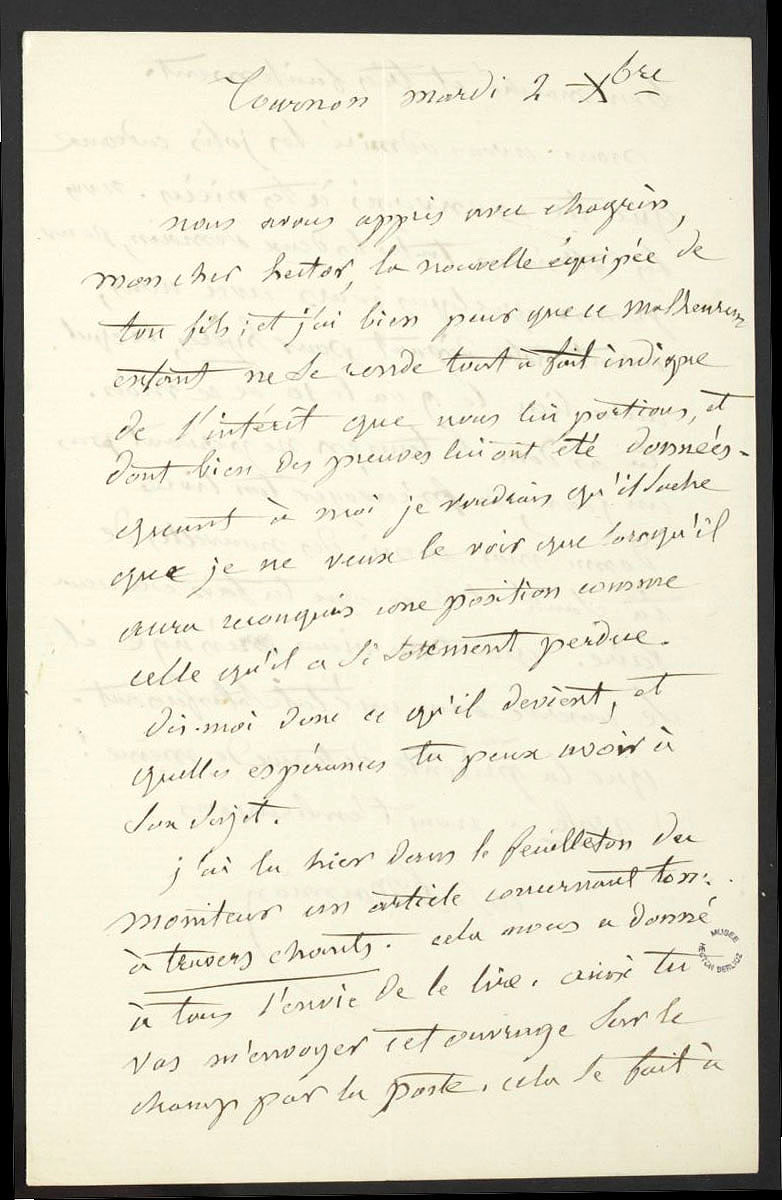 Tournon mardi 2 Xbre
nous avons appris avec chagrin,
mon cher hector, la nouvelle équipée de
ton fils ; et j'ai bien peur que ce malheureux
enfant ne se rende tout à fait indigne
de l'intérêt que nous lui portions, et
dont bien des preuves lui ont été données.
quant à moi je voudrais qu'il sache
que je ne veux le voir que lorsqu'il
aura reconquis une position comme
celle qu'il a si sotement perdue.
dis-moi donc ce qu'il devient, et
quelles espérances tu peux avoir à
son sujet.
j'ai lu hier dans le feuilleton du
moniteur un article concernant ton:
à travers chants. cela nous a donné
MUSEE
HECTOR BERLIOZ
à tous l'envie de le lire. ainsi tu
vas m'envoyer cet ouvrage sur le
champ par la poste. cela se fait à